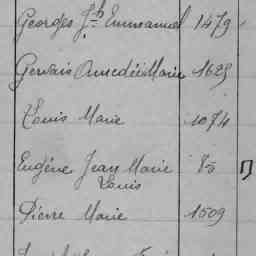 Georges Jh Emmanuel 1479
Gervais Amedée Marie 1625
Louis Marie 1074
Eugène Jean Marie 85
Louis
Pierre Marie 1509